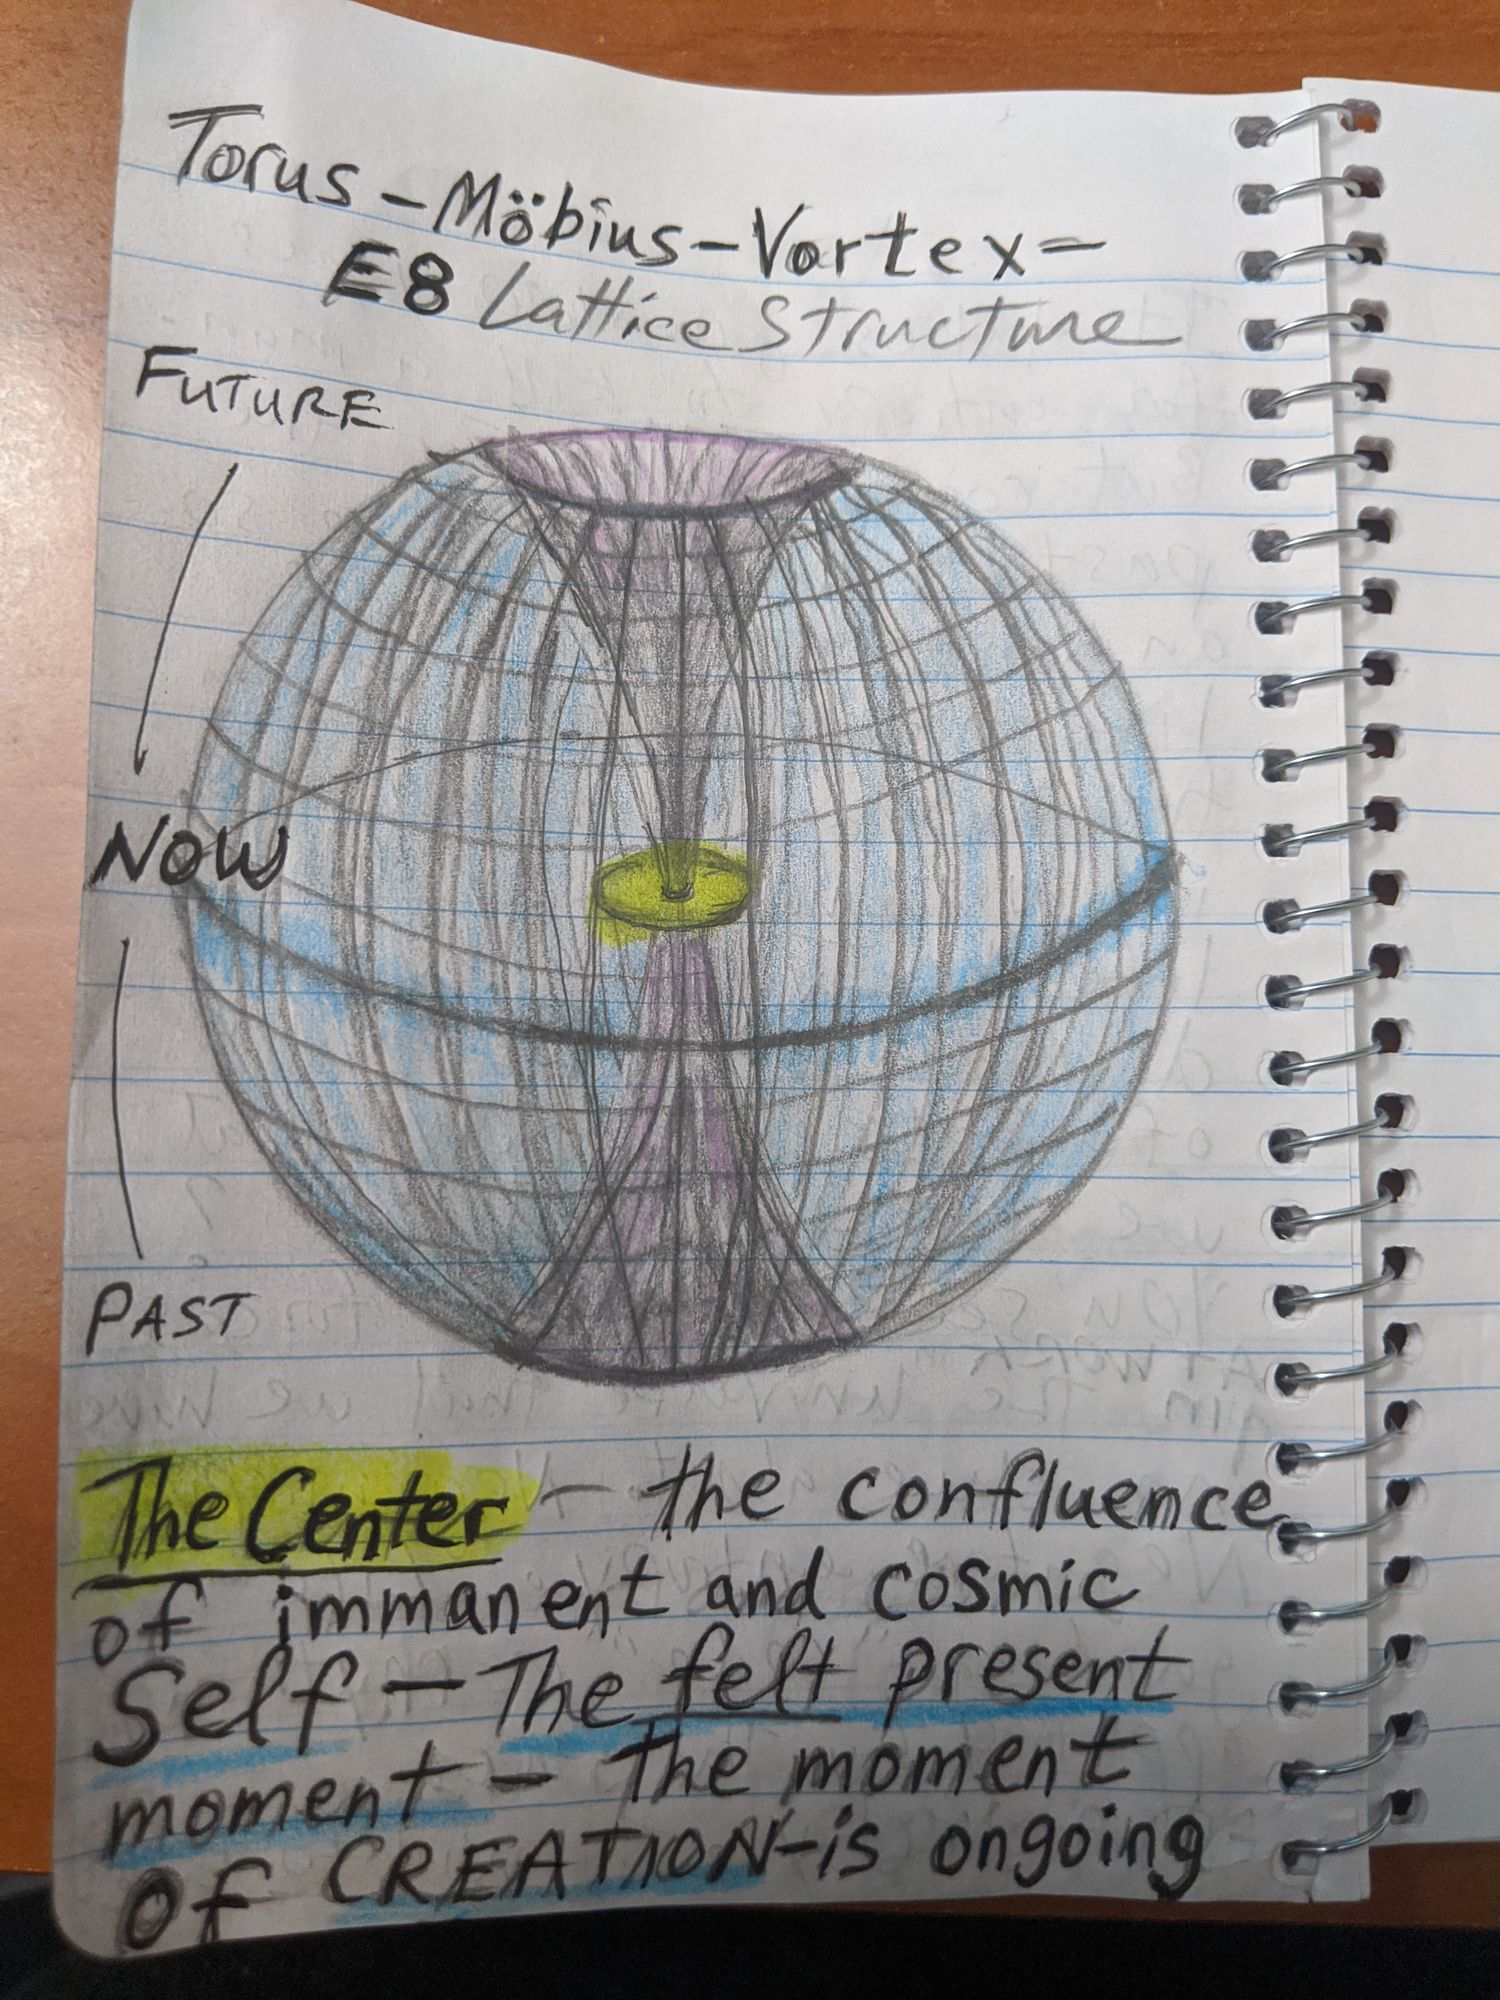 Torus-Möbius-Vortex-
E8 Lattice Structure
FUTURE
NOW
PAST
The Center - the confluence
of immanent and cosmic
Self - The felt present
moment - the moment
of CREATION-is ongoing